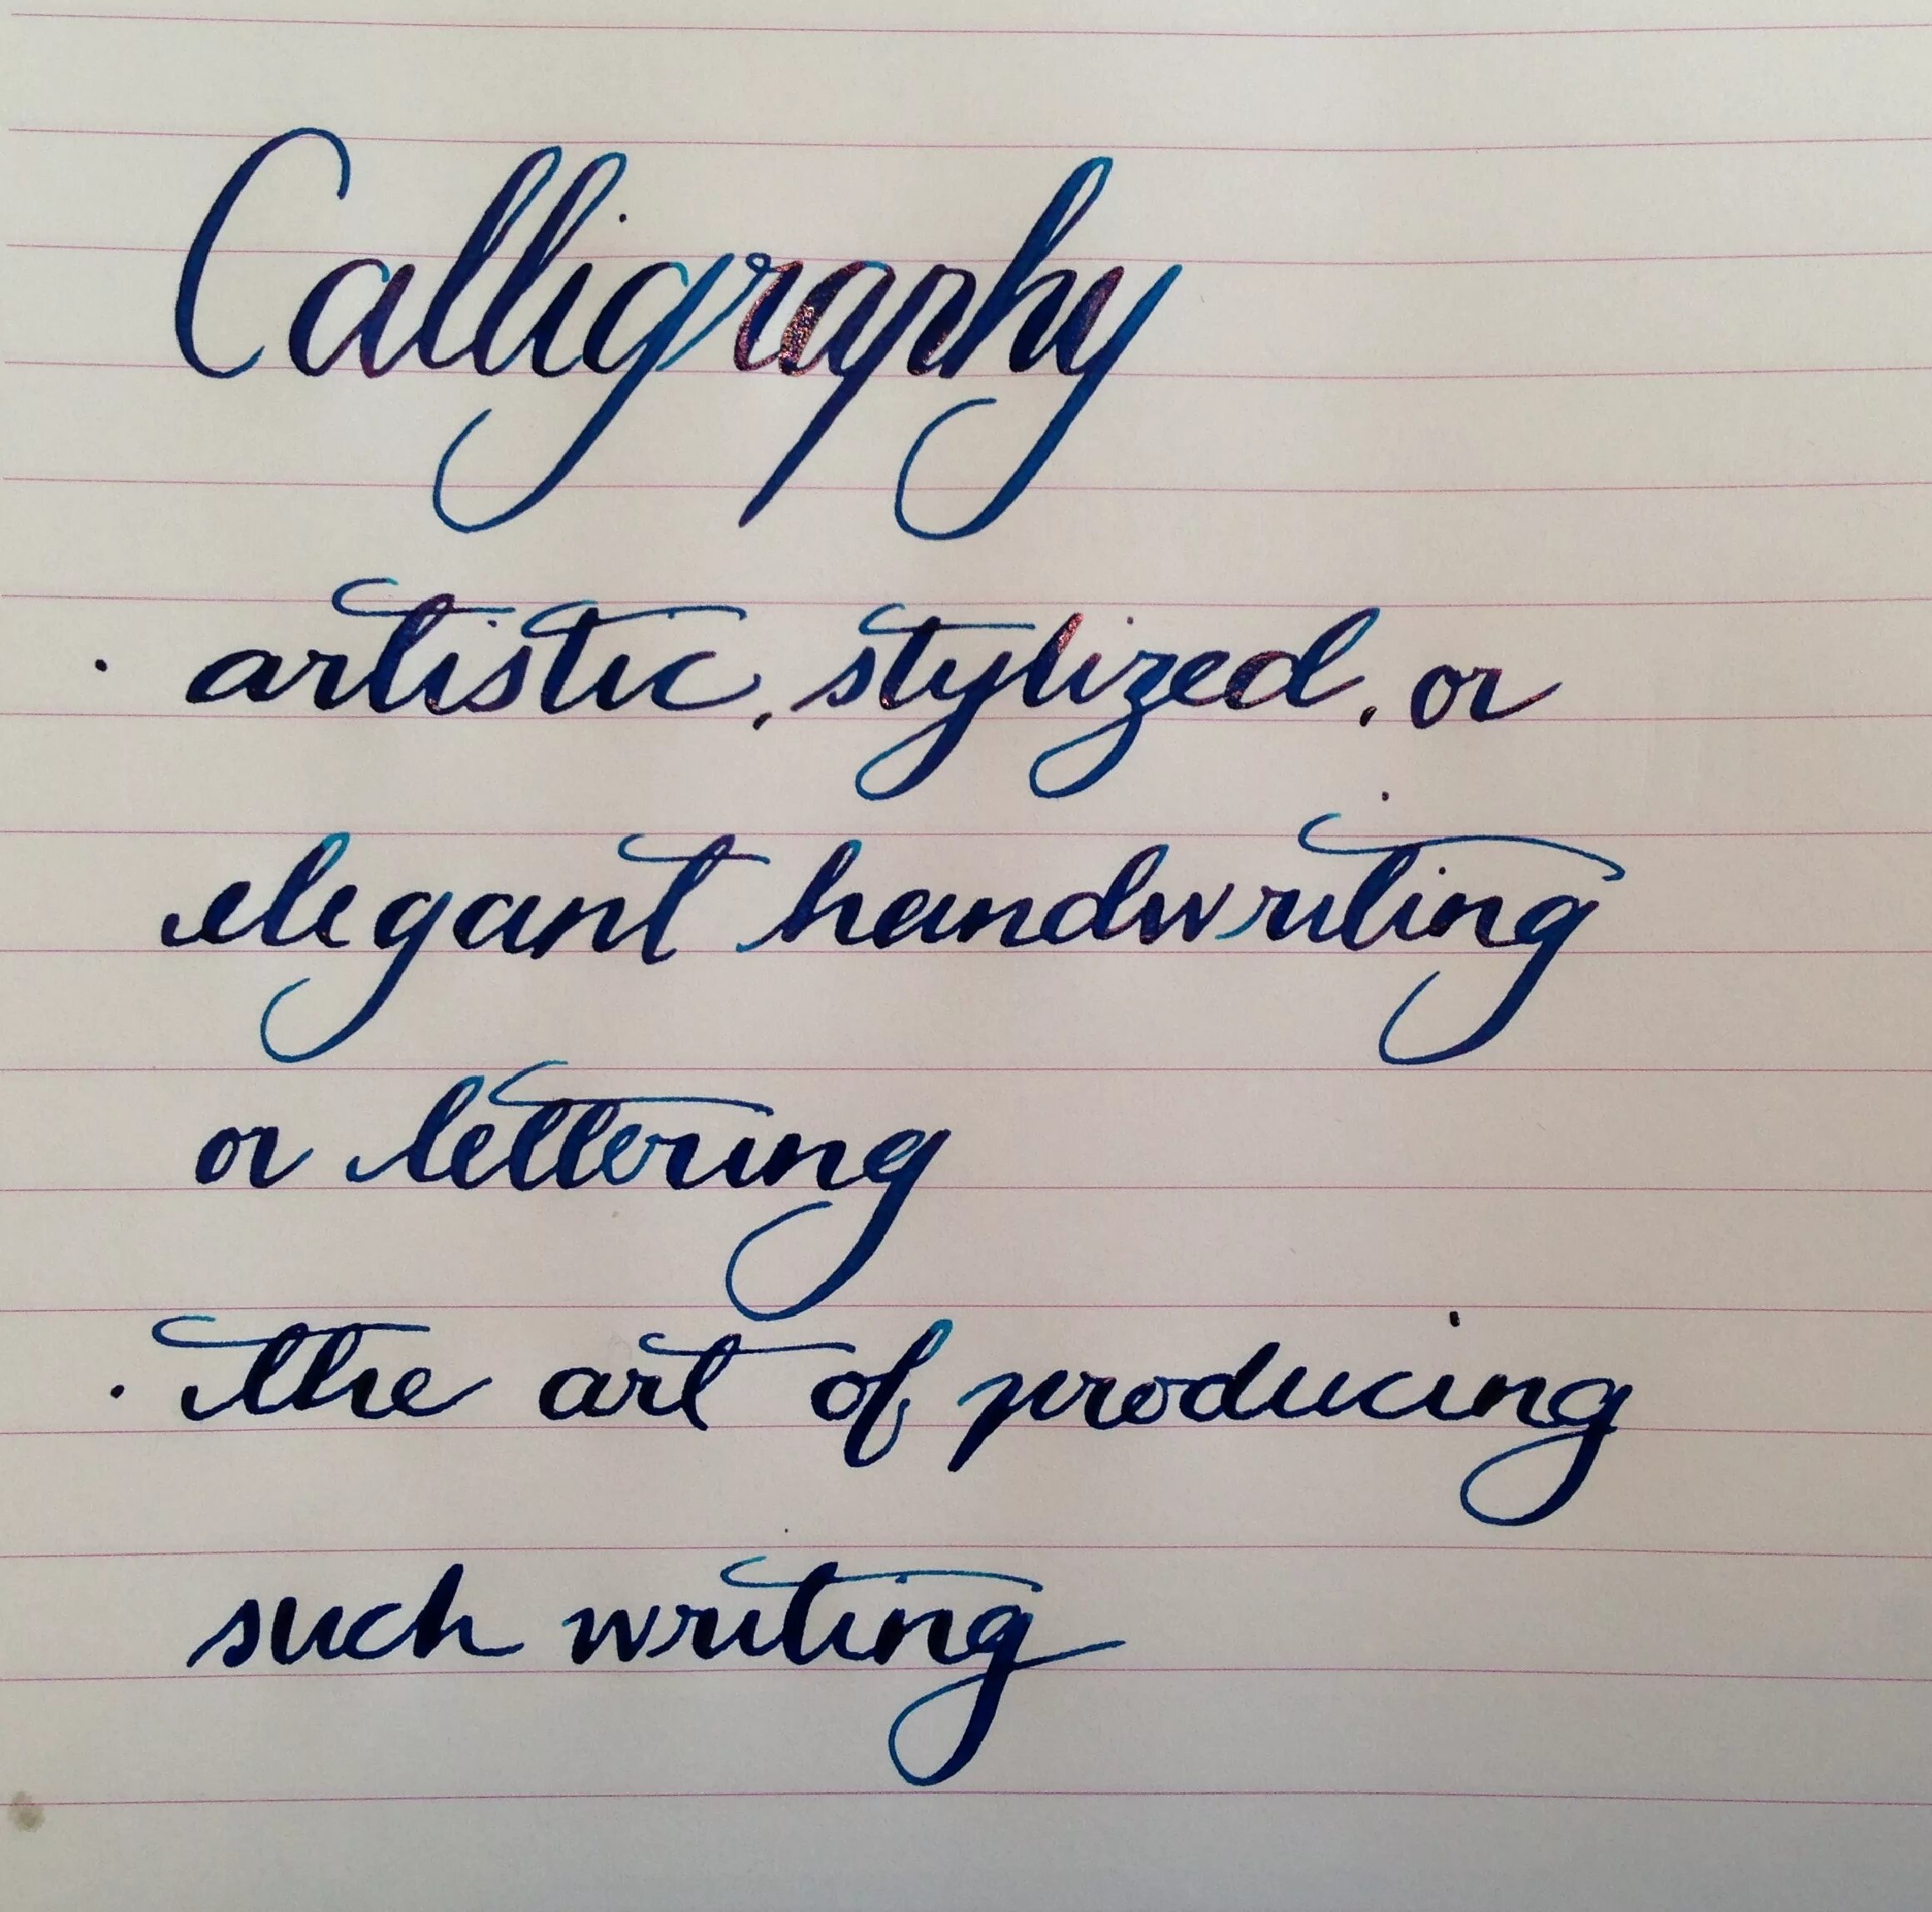 Calligraphy
· artistic, stylized, or
elegant handwriting
or lettering
· the art of producing
such writing